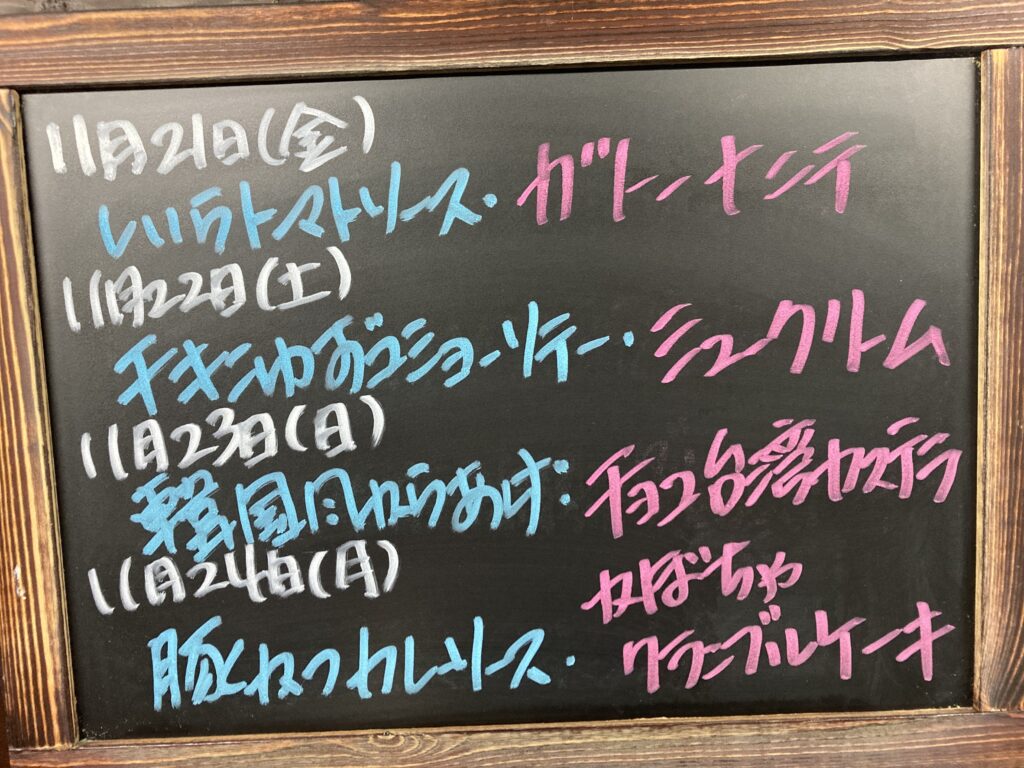 11月21日(金)
しいらトマトソース・ガトーナンテ
11月22日(土)
チキンゆずコショーソテー・シュークリーム
11月23日(日)
韓国風からあげ・チョコ台湾カステラ
11月24日(月)
豚ヒレカツカレーソース・かぼちゃ
クランブルケーキ